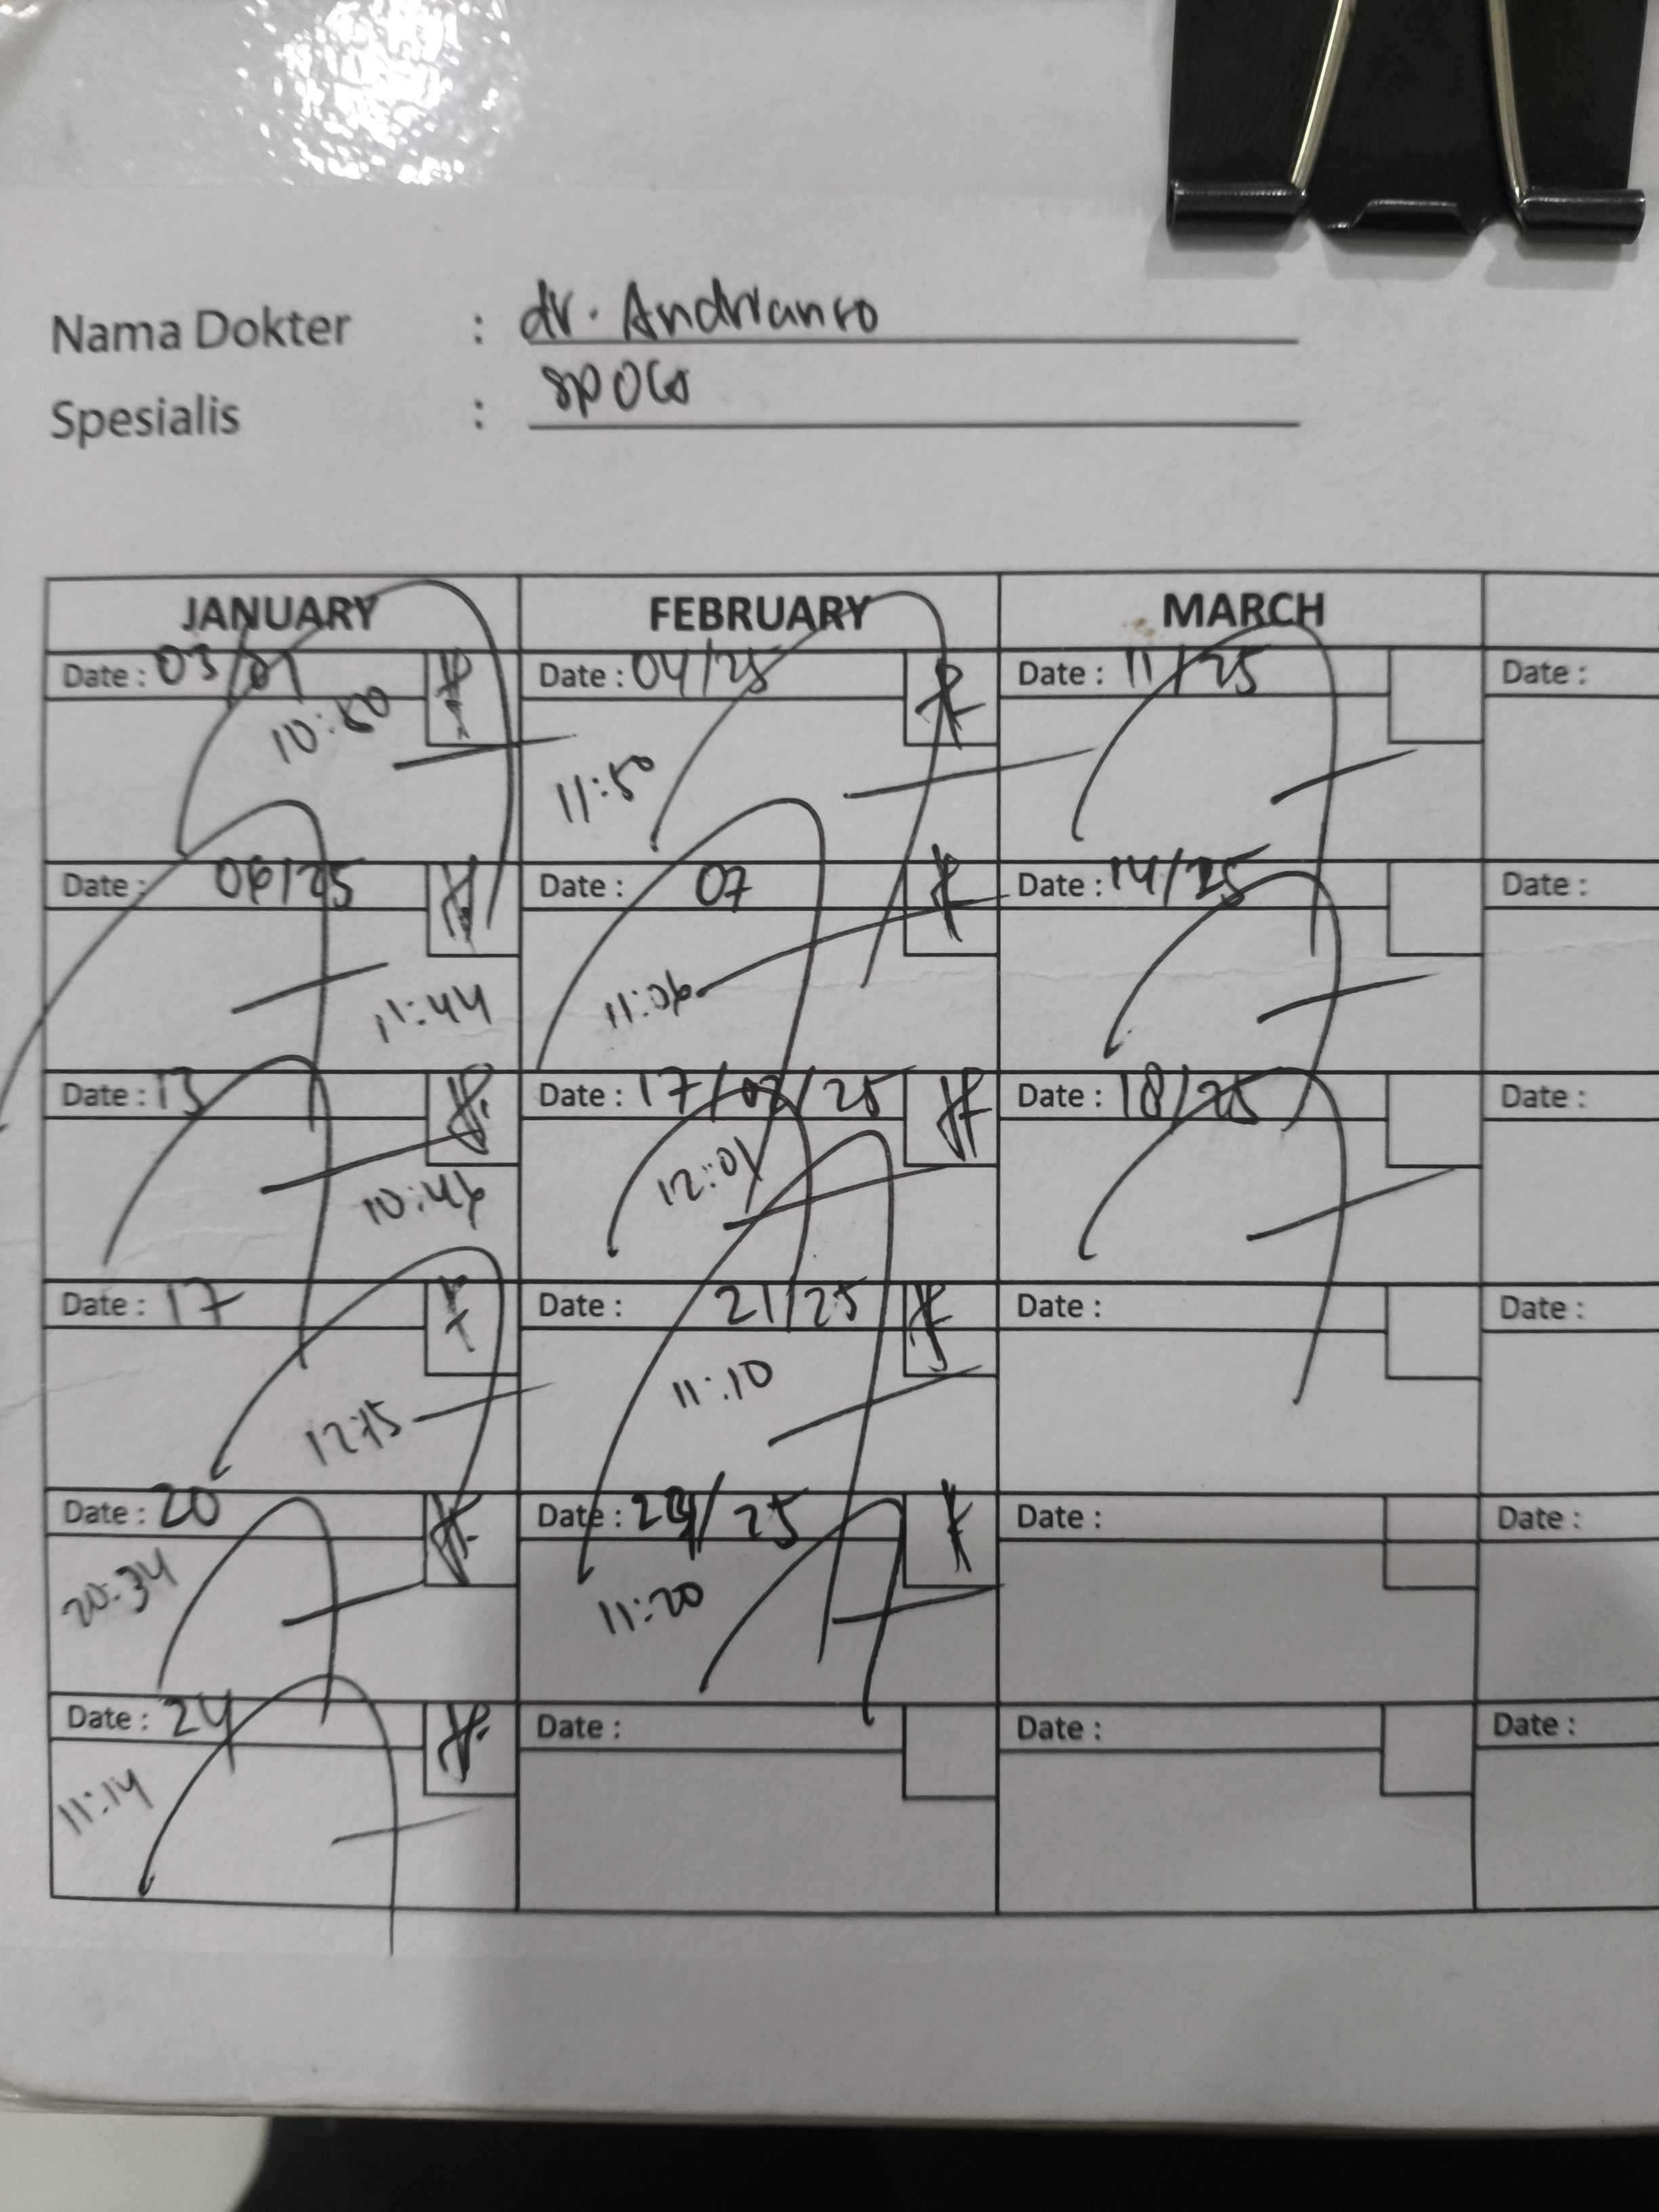 Nama Dokter : dr. Andrianro
Spesialis : SPOG
JANUARY FEBRUARY MARCH
Date : 03/01 Date : 04/25 Date : 11/25 Date :
10:50 11:50
Date : 06/25 Date : 07 Date : 14/25 Date :
11:44 11:06
Date : 13 Date : 17/02/25 Date : 18/25 Date :
10:46 12:01
Date : 17 Date : 21/25 Date : Date :
12:15 11:10
Date : 20 Date : 24/25 Date : Date :
20:34 11:20
Date : 24 Date : Date : Date :
11:14